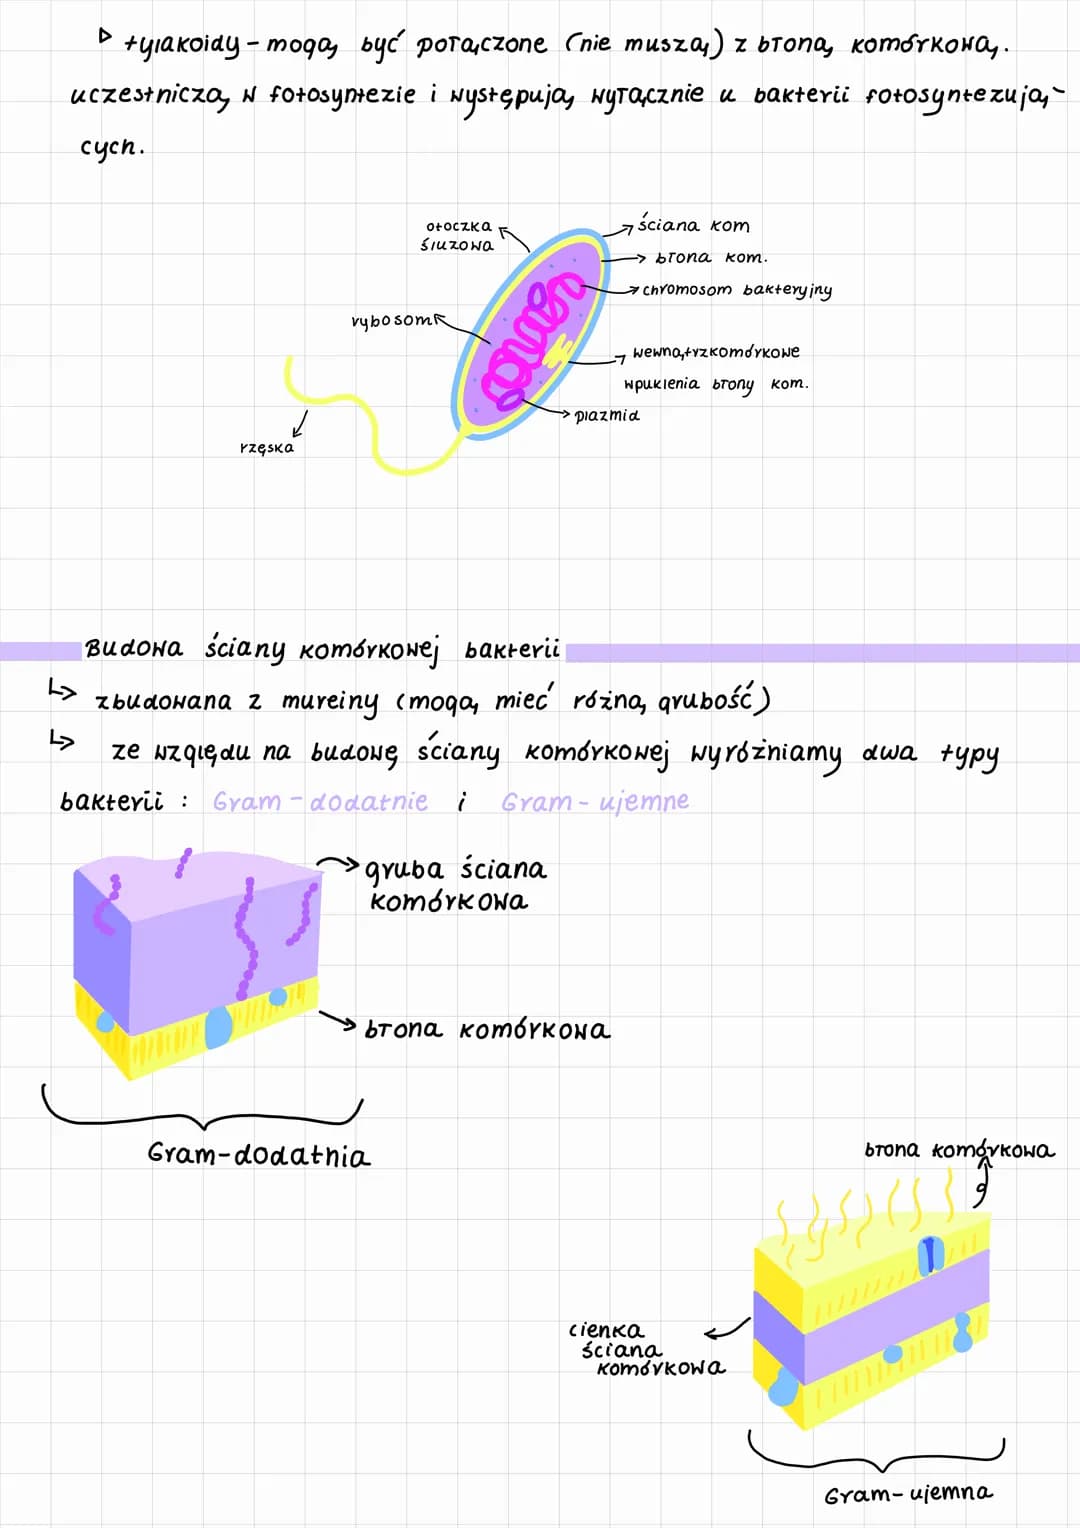 ▷ tylakoidy – mogą być połączone (nie muszą) z błoną komórkową.
uczestniczą w fotosyntezie i występują wyłącznie u bakterii fotosyntezują-
cych.
otoczka
śluzowa
ściana kom
błona kom.
chromosom bakteryjny
rybosom
wewnątrzkomórkowe
wpuklenia błony kom.
plazmid
rzęska
Budowa ściany komórkowej bakterii
↳ zbudowana z mureiny (mogą mieć różną grubość)
↳ ze względu na budowę ściany komórkowej wyróżniamy dwa typy
bakterii : Gram – dodatnie i Gram – ujemne
gruba ściana
komórkowa
błona komórkowa
Gram-dodatnia
błona komórkowa
cienka
ściana
komórkowa
Gram-ujemna